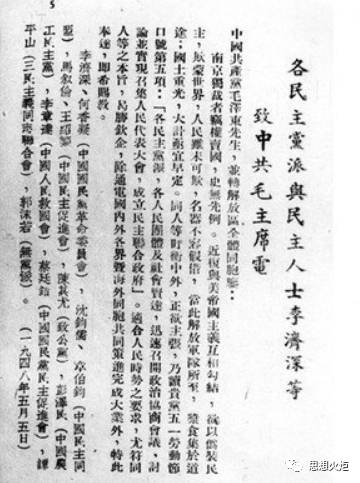 5
各民主黨派與民主人士李濟深等
致中共毛主席電
中國共產黨毛澤東先生，並轉解放區全體同胞鑒：
南京獨裁者竊權賣國，史無先例。近復與美帝國主義互相勾結，欲以僞裝民
主，欺蒙世界，人民雖未可欺，名器不容假借。當此解放軍隊所至，漿食集於道
途；國土重光，大計亟宜早定。同人等盱衡中外，正欲主張，乃讀貴黨五一勞動節
口號第五項：「各民主黨派，各人民團體及社會賢達，迅速召開政治協商會議，討
論並實現召集人民代表大會，成立民主聯合政府」。適合人民時勢之要求，尤符同
人等之本旨，曷勝欽企，除通電國內外各界暨海外同胞共同策進完成大業外，特此
奉達，即希賜教。
李濟深、何香凝（中國國民黨革命委員會），沈鈞儒、章伯鈞（中國民主同
盟），馬叙倫、王紹鏊（中國民主促進會），陳其尤（致公黨），彭澤民（中國農
工民主黨），李章達（中國人民救國會），蔡廷鍇（中國國民黨民主促進會），譚
平山（三民主義同志聯合會），郭沫若（無黨派）。（一九四八年五月五日）
思想火炬